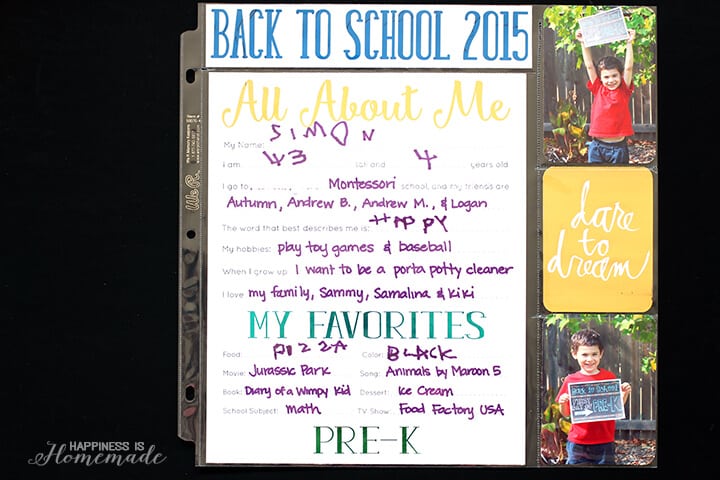 BACK TO SCHOOL 2015
All About Me
My Name: SIMON
I am 43 tall and 4 years old
I go to Montessori school, and my friends are
Autumn, Andrew B., Andrew M., & Logan
The word that best describes me is: HAPPY
My hobbies: play toy games & baseball
When I grow up: I want to be a porta potty cleaner
I love my family, Sammy, Samalina & Kiki
MY FAVORITES
Food: PIZZA Color: BLACK
Movie: Jurassic Park Song: Animals by Maroon 5
Book: Diary of a Wimpy Kid Dessert: Ice Cream
School Subject: math TV Show: Food Factory USA
PRE-K
dare
to
dream
Back to School
PRE-K
We R
HAPPINESS IS
Homemade